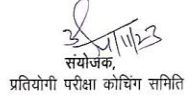 संयोजक,
प्रतियोगी परीक्षा कोचिंग समिति